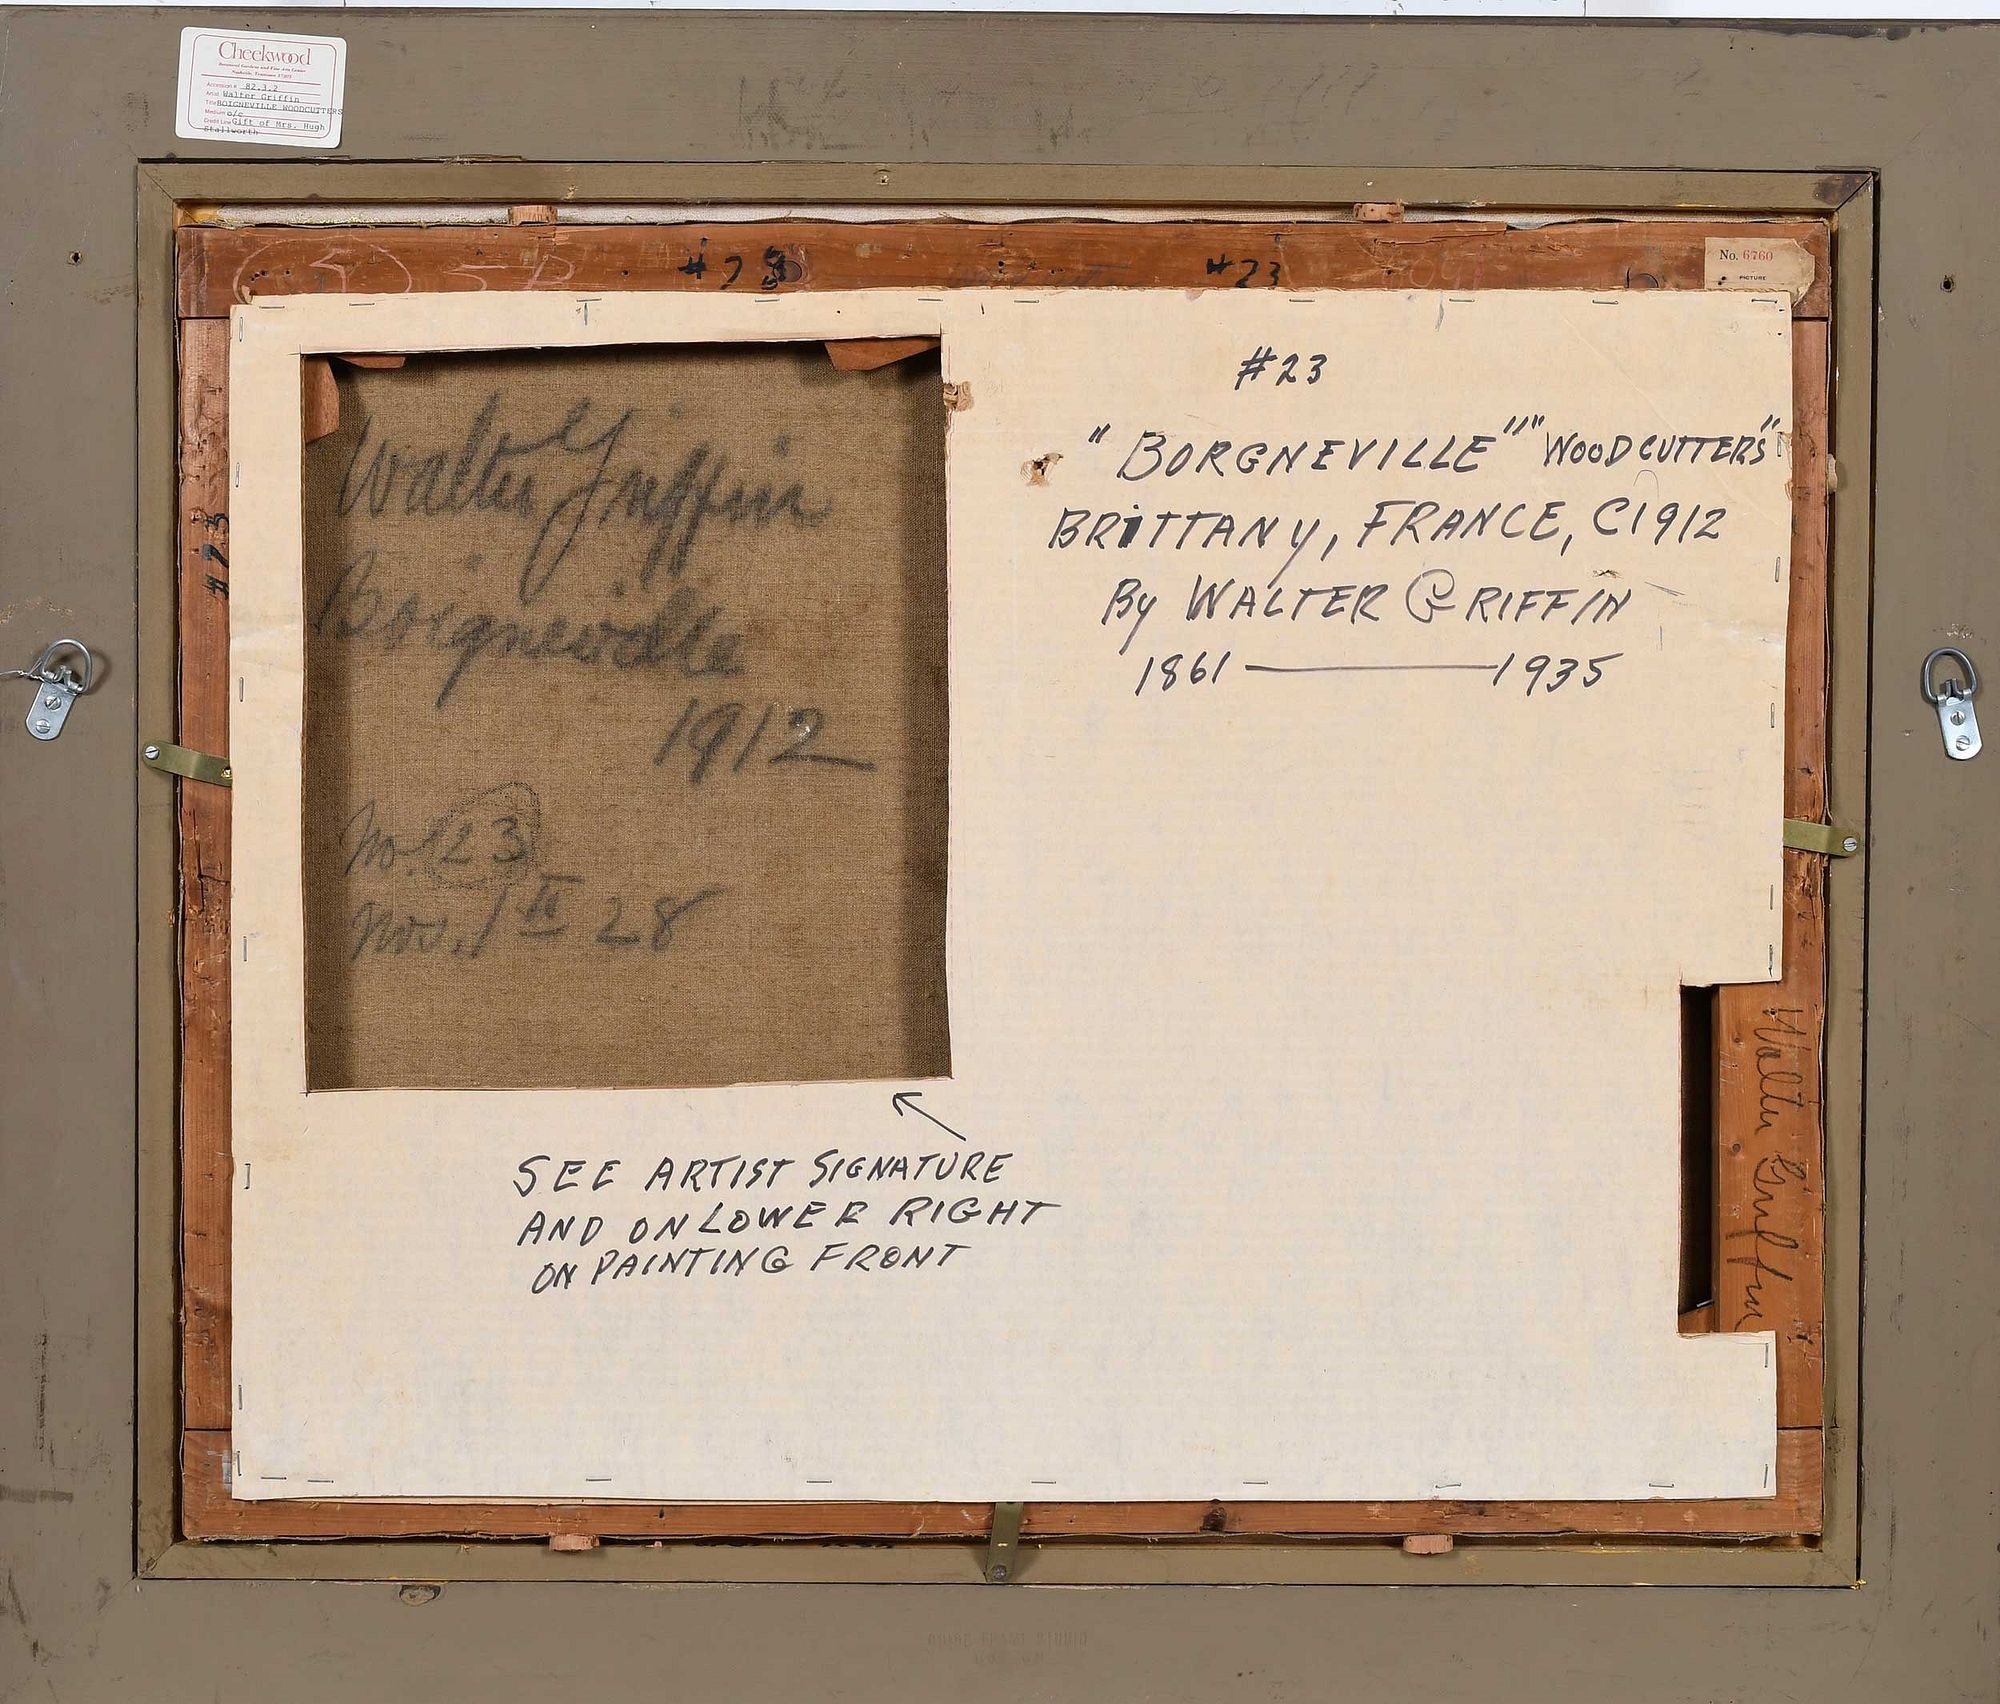 Cheekwood
Botanical Gardens and Fine Arts Center
Nashville, Tennessee 37205
Accession # 82.3.2
Artist Walter Griffin
Title BOIGNEVILLE WOODCUTTERS
Medium o/c
Credit Line Gift of Mrs. Hugh
Stallworth
#23
No. 6760
PICTURE
#23
"BORGNEVILLE" "WOODCUTTERS"
BRITTANY, FRANCE, C1912
By WALTER GRIFFIN
1861 — 1935
Walter Griffin
Boigneville
1912
No. 23
Nov. 1 28
#23
SEE ARTIST SIGNATURE
AND ON LOWER RIGHT
ON PAINTING FRONT
Walter Griffin